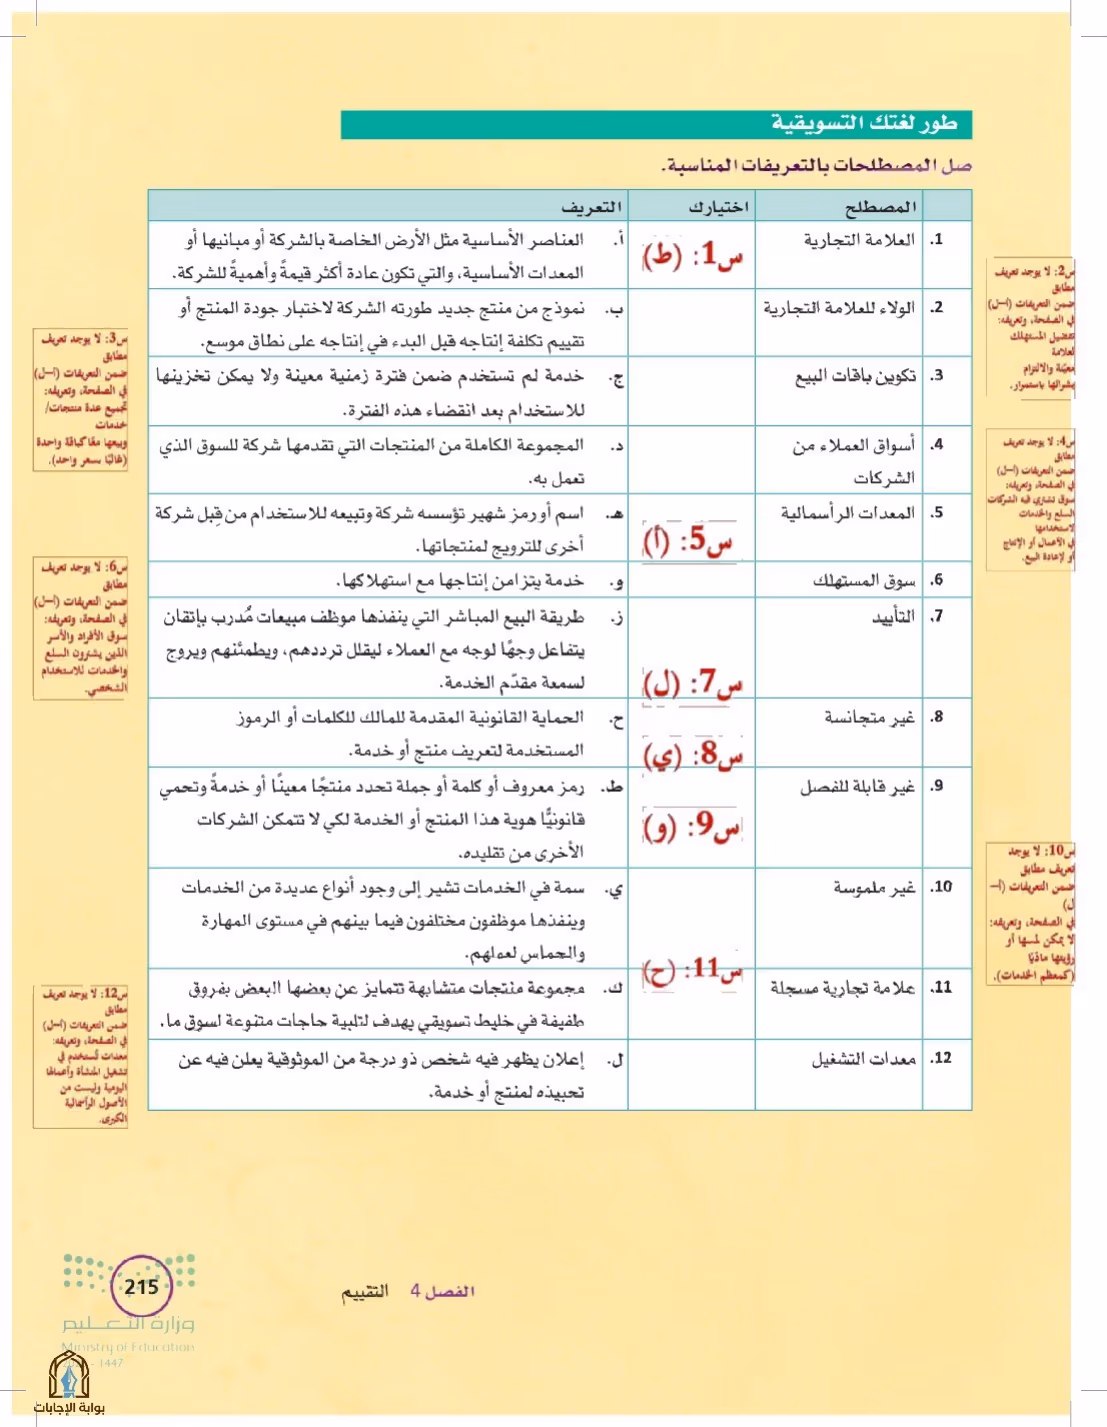 طور لغتك التسويقية
صل المصطلحات بالتعريفات المناسبة.
المصطلح اختيارك التعريف
1. العلامة التجارية س1: (ط) أ. العناصر الأساسية مثل الأرض الخاصة بالشركة أو مبانيها أو
المعدات الأساسية، والتي تكون عادة أكثر قيمةً وأهميةً للشركة.
2. الولاء للعلامة التجارية ب. نموذج من منتج جديد طورته الشركة لاختبار جودة المنتج أو
تقييم تكلفة إنتاجه قبل البدء في إنتاجه على نطاق موسع.
3. تكوين باقات البيع ج. خدمة لم تستخدم ضمن فترة زمنية معينة ولا يمكن تخزينها
للاستخدام بعد انقضاء هذه الفترة.
4. أسواق العملاء من د. المجموعة الكاملة من المنتجات التي تقدمها شركة للسوق الذي
الشركات تعمل به.
5. المعدات الرأسمالية س5: (أ) هـ. اسم أو رمز شهير تؤسسه شركة وتبيعه للاستخدام من قِبل شركة
أخرى للترويج لمنتجاتها.
6. سوق المستهلك و. خدمة يتزامن إنتاجها مع استهلاكها.
7. التأييد س7: (ل) ز. طريقة البيع المباشر التي ينفذها موظف مبيعات مُدرب بإتقان
يتفاعل وجهًا لوجه مع العملاء ليقلل ترددهم، ويطمئنهم ويروج
لسمعة مقدّم الخدمة.
8. غير متجانسة س8: (ي) ح. الحماية القانونية المقدمة للمالك للكلمات أو الرموز
المستخدمة لتعريف منتج أو خدمة.
9. غير قابلة للفصل س9: (و) ط. رمز معروف أو كلمة أو جملة تحدد منتجًا معينًا أو خدمةً وتحمي
قانونيًّا هوية هذا المنتج أو الخدمة لكي لا تتمكن الشركات
الأخرى من تقليده.
10. غير ملموسة ي. سمة في الخدمات تشير إلى وجود أنواع عديدة من الخدمات
وينفذها موظفون مختلفون فيما بينهم في مستوى المهارة
والحماس لعملهم.
11. علامة تجارية مسجلة س11: (ح) ك. مجموعة منتجات متشابهة تتمايز عن بعضها البعض بفروق
طفيفة في خليط تسويقي يهدف لتلبية حاجات متنوعة لسوق ما.
12. معدات التشغيل ل. إعلان يظهر فيه شخص ذو درجة من الموثوقية يعلن فيه عن
تحبيذه لمنتج أو خدمة.
س2: لا يوجد تعريف
مطابق
ضمن التعريفات (أ–ل)
في الصفحة، وتعريفه:
تفضيل المستهلك
لعلامة
معيّنة والالتزام
بشرائها باستمرار.
س3: لا يوجد تعريف
مطابق
ضمن التعريفات (أ–ل)
في الصفحة، وتعريفه:
تجميع عدة منتجات/
خدمات
وبيعها معًا كباقة واحدة
(غالبًا بسعر واحد).
س4: لا يوجد تعريف
مطابق
ضمن التعريفات (أ–ل)
في الصفحة، وتعريفه:
سوق تشتري فيه الشركات
السلع والخدمات
لاستخدامها
في الأعمال أو الإنتاج
أو لإعادة البيع.
س6: لا يوجد تعريف
مطابق
ضمن التعريفات (أ–ل)
في الصفحة، وتعريفه:
سوق الأفراد والأسر
الذين يشترون السلع
والخدمات للاستخدام
الشخصي.
س10: لا يوجد
تعريف مطابق
ضمن التعريفات (أ–
ل)
في الصفحة، وتعريفه:
لا يمكن لمسها أو
رؤيتها ماديًا
(كمعظم الخدمات).
س12: لا يوجد تعريف
مطابق
ضمن التعريفات (أ–ل)
في الصفحة، وتعريفه:
معدات تُستخدم في
تشغيل المنشأة وأعمالها
اليومية وليست من
الأصول الرأسمالية
الكبرى.
الفصل 4 التقييم
215
وزارة التعليم
Ministry of Education
- 1447
بوابة الإجابات